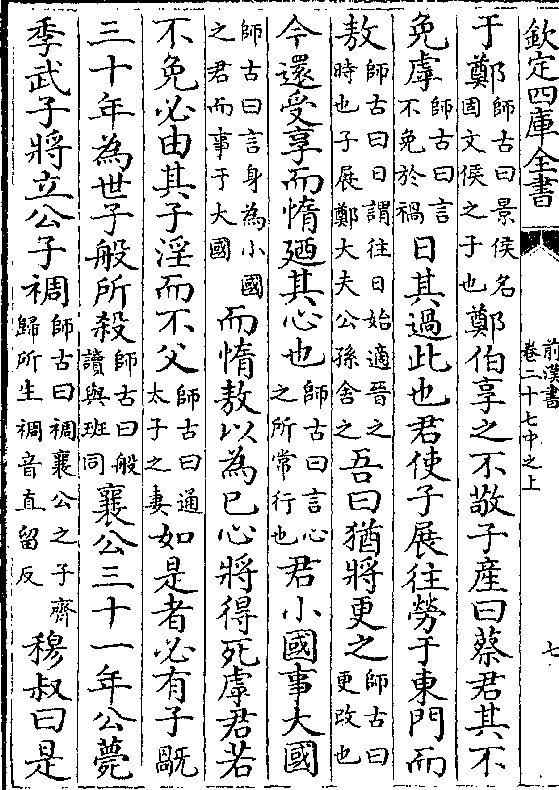 欽定四庫全書
前漢書
卷二十七中之上
七
于鄭師古曰景侯名固文侯之子也鄭伯享之不敬子產曰蔡君其不
免虖師古曰言不免於禍日其過此也君使子展往勞于東門而
敖師古曰日謂往日始適晉之時也子展鄭大夫公孫舍之吾曰猶將更之師古曰更改也
今還受享而惰廼其心也師古曰言心之所常行也君小國事大國
師古曰言身為小國之君而事于大國而惰敖以為已心將得死虖君若
不免必由其子淫而不父師古曰通太子之妻如是者必有子旤
三十年為世子般所殺師古曰般讀與班同襄公三十一年公薨
季武子將立公子裯師古曰裯襄公之子齊歸所生裯音直留反穆叔曰是